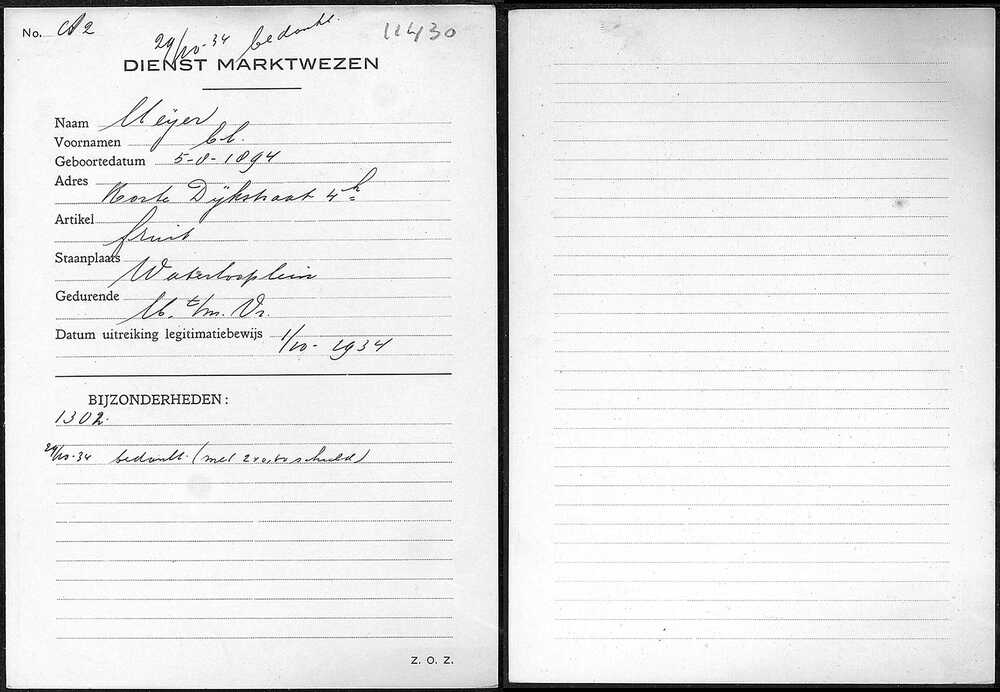 No. 11430
29/10-34 bedankt.
DIENST MARKTWEZEN
Naam Meijer
Voornamen
Geboortedatum 5-8-1894
Adres
Korte Dijkstraat 4 h
Artikel
fruit
Staanplaats
Waterlooplein
Gedurende
M. t/m. Vr.
Datum uitreiking legitimatiebewijs 1/10-1934
BIJZONDERHEDEN:
1302.
29/10-34 bedankt. (met schuld)
Z. O. Z.